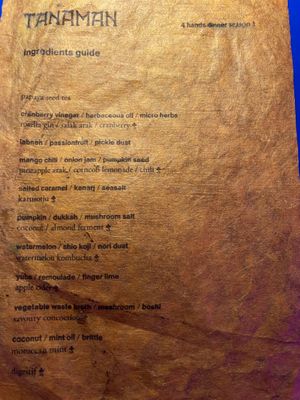 TANAMAN
4 hands dinner season 1
ingredients guide
papaya seed tea
cranberry vinegar / herbaceous oil / micro herbs
rosella gin / salak arak / cranberry
labneh / passionfruit / pickle dust
mango chili / onion jam / pumpkin seed
pineapple arak / corncob lemonade / chili
salted caramel / kenari / seasalt
karusotju
pumpkin / dukkah / mushroom salt
coconut / almond ferment
watermelon / shio koji / nori dust
watermelon kombucha
yuba / remoulade / finger lime
apple cider
vegetable waste broth / mushroom / boshi
savoury concoction
coconut / mint oil / brittle
moroccan mint
digestif